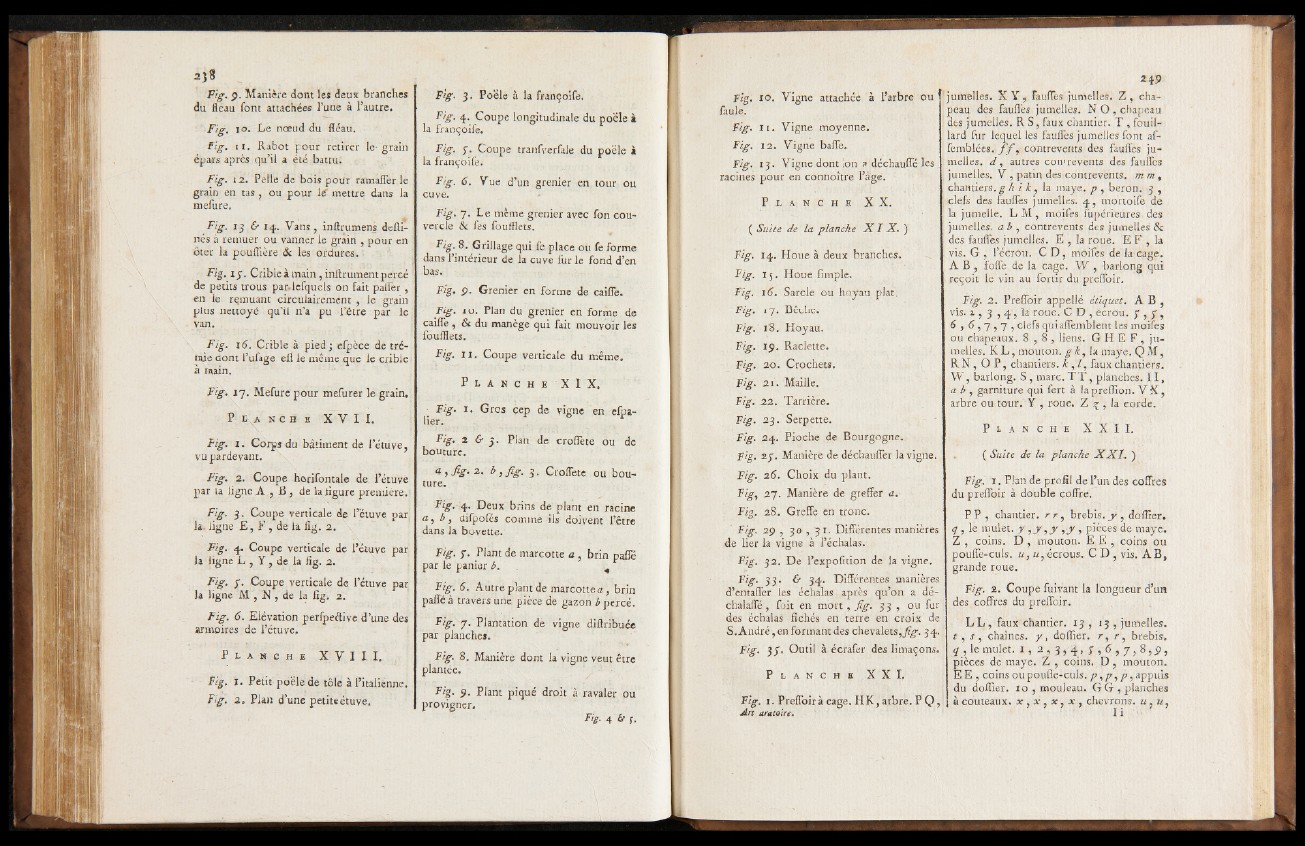 238
Fig. 9. Manière dont les deux branches
du fléau ſont attachées l'une à l'autre.
Fig. 10. Le nœud du fléau.
Fig. 11. Rabot pour retirer le grain
épars après qu'il a été battu.
Fig. 12. Pelle de bois pour ramaſſer le
grain en tas, ou pour le mettre dans la
meſure.
Fig. 13 & 14. Vans, inſtrumens deſti-
nés à remuer ou vanner le grain, pour en
ôter la pouſſière & les ordures.
Fig. 15. Crible à main, inſtrument percé
de petits trous par leſquels on fait paſſer,
en le remuant circulairement, le grain
plus nettoyé qu'il n'a pu l'être par le
van.
Fig. 16. Crible à pied; eſpèce de tré-
mie dont l'uſage eſt le même que le crible
à main.
Fig. 17. Meſure pour meſurer le grain.
PLANCHE XVII.
Fig. 1. Corps du bâtiment de l'étuve,
vu pardevant.
Fig. 2. Coupe horiſontale de l'étuve
par la ligne A, B, de la figure premiere.
Fig. 3. Coupe verticale de l'étuve par
la ligne E, F, de la fig. 2.
Fig. 4. Coupe verticale de l'étuve par
la ligne L, Y, de la fig. 2.
Fig. 5. Coupe verticale de l'étuve par
la ligne M, N, de la fig. 2.
Fig. 6. Elévation perſpective d'une des
armoires de l'étuve.
PLANCHE XVIII.
Fig. 1. Petit poële de tôle à l'italienne.
Fig. 2. Plan d'une petite étuve.
Fig. 3. Poële à la françoiſe.
Fig. 4. Coupe longitudinale du poële à
la françoiſe.
Fig. 5. Coupe tranſverſale du poële à
la françoiſe.
Fig. 6. Vue d'un grenier en tour ou
cuve.
Fig. 7. Le même grenier avec ſon cou-
vercle & ſes ſoufflets.
Fig. 8. Grillage qui ſe place ou ſe forme
dans l'intérieur de la cuve ſur le fond d'en
bas.
Fig. 9. Grenier en forme de caiſſe.
Fig. 10. Plan du grenier en forme de
caiſſe, & du manège qui fait mouvoir les
ſoufflets.
Fig. 11. Coupe verticale du même.
PLANCHE XIX.
Fig. 1. Gros cep de vigne en eſpa-
lier.
Fig. 2 & 3. Plan de croſſete ou de
bouture.
a, fig. 2. b, fig. 3. Croſſete ou bou-
ture.
Fig. 4. Deux brins de plant en racine
a, b, diſpoſés comme ils doivent l'être
dans la bovette.
Fig. 5. Plant de marcotte a, brin paſſé
par le panier b.
Fig. 6. Autre plant de marcotte a, brin
paſſé à travers une pièce de gazon b percé.
Fig. 7. Plantation de vigne diſtribuée
par planches.
Fig. 8. Manière dont la vigne veut être
plantée.
Fig. 9. Plant piqué droit à ravaler ou
provigner.
Fig. 4 & 5.
249
Fig. 10. Vigne attachée à l'arbre ou
ſaule.
Fig. 11. Vigne moyenne.
Fig. 12. Vigne baſſe.
Fig. 13. Vigne dont on a déchauſſé les
racines pour en connoître l'âge.
PLANCHE XX.
( Suite de la planche XIX. )
Fig. 14. Houe à deux branches.
Fig. 15. Houe ſimple.
Fig. 16. Sarcle ou hoyau plat.
Fig. 17. Bêche.
Fig. 18. Hoyau.
Fig. 19. Raclette.
Fig. 20. Crochets.
Fig. 21. Maille.
Fig. 22. Tarrière.
Fig. 23. Serpette.
Fig. 24. Pioche de Bourgogne.
Fig. 25. Manière de déchauſſer la vigne.
Fig. 26. Choix du plant.
Fig. 27. Manière de greffer a.
Fig. 28. Greffe en tronc.
Fig. 29, 30, 31. Différentes manières
de lier la vigne à l'échalas.
Fig. 32. De l'expoſition de la vigne.
Fig. 33. & 34. Différentes manières
d'entaſſer les échalas après qu'on a dé-
chalaſſé, ſoit en mort, fig. 33, ou ſur
des échalas fichés en terre en croix de
S. André, en formant des chevalets, fig. 34.
Fig. 35. Outil à écraſer des limaçons.
PLANCHE XXI.
Fig. 1. Preſſoir à cage. HK, arbre. PQ,
Art aratoire.
jumelles. XY, fauſſes jumelles. Z, cha-
peau des fauſſes jumelles. NO, chapeau
des jumelles. RS, faux chantier. T, fouil-
lard ſur lequel les fauſſes jumelles ſont aſ-
ſemblées. ff, contrevents des fauſſes ju-
melles. d, autres contrevents des fauſſes
jumelles. V, patin des contrevents. mm,
chantiers. g h i k, la maye. p, beron. 3,
clefs des fauſſes jumelles. 4, mortoiſe de
la jumelle. LM, moiſes ſupérieures des
jumelles. a b, contrevents des jumelles &
des fauſſes jumelles. E, la roue. EF, la
vis. G, l'écrou. CD, moiſes de la cage.
AB, foſſe de la cage. W, barlong qui
reçoit le vin au ſortir du preſſoir.
Fig. 2. Preſſoir appellé étiquet. AB,
vis. 2, 3, 4, la roue. CD, écrou. 5, 5,
6, 6, 7, 7, clefs qui aſſemblent les moiſes
ou chapeaux. 8, 8, liens. GHEF, ju-
melles. KL, mouton. g k, la maye. QM,
RN, OP, chantiers. k, l, faux chantiers.
W, barlong. S, marc. TT, planches. II,
a b, garniture qui ſert à la preſſion. VX,
arbre ou tour. Y, roue. Z ɀ, la corde.
PLANCHE XXII.
( Suite de la planche XXI. )
Fig. 1. Plan de profil de l'un des coffres
du preſſoir à double coffre.
PP, chantier. r r, brebis. y, doſſier.
q, le mulet. y, y, y, y, pièces de maye.
Z, coins. D, mouton. EE, coins ou
pouſſe-culs. u, u, écrous. CD, vis. AB,
grande roue.
Fig. 2. Coupe ſuivant la longueur d'un
des coffres du preſſoir.
LL, faux chantier. 13, 13, jumelles.
t, s, chaînes. y, doſſier. r, r, brebis.
q, le mulet. 1, 2, 3, 4, 5, 6, 7, 8, 9,
pièces de maye. Z, coins. D, mouton.
EE, coins ou pouſſe-culs. p, p, p, appuis
du doſſier. 10, mouleau. GG, planches
à couteaux. x, x, x, x, chevrons. u, u,
Ii